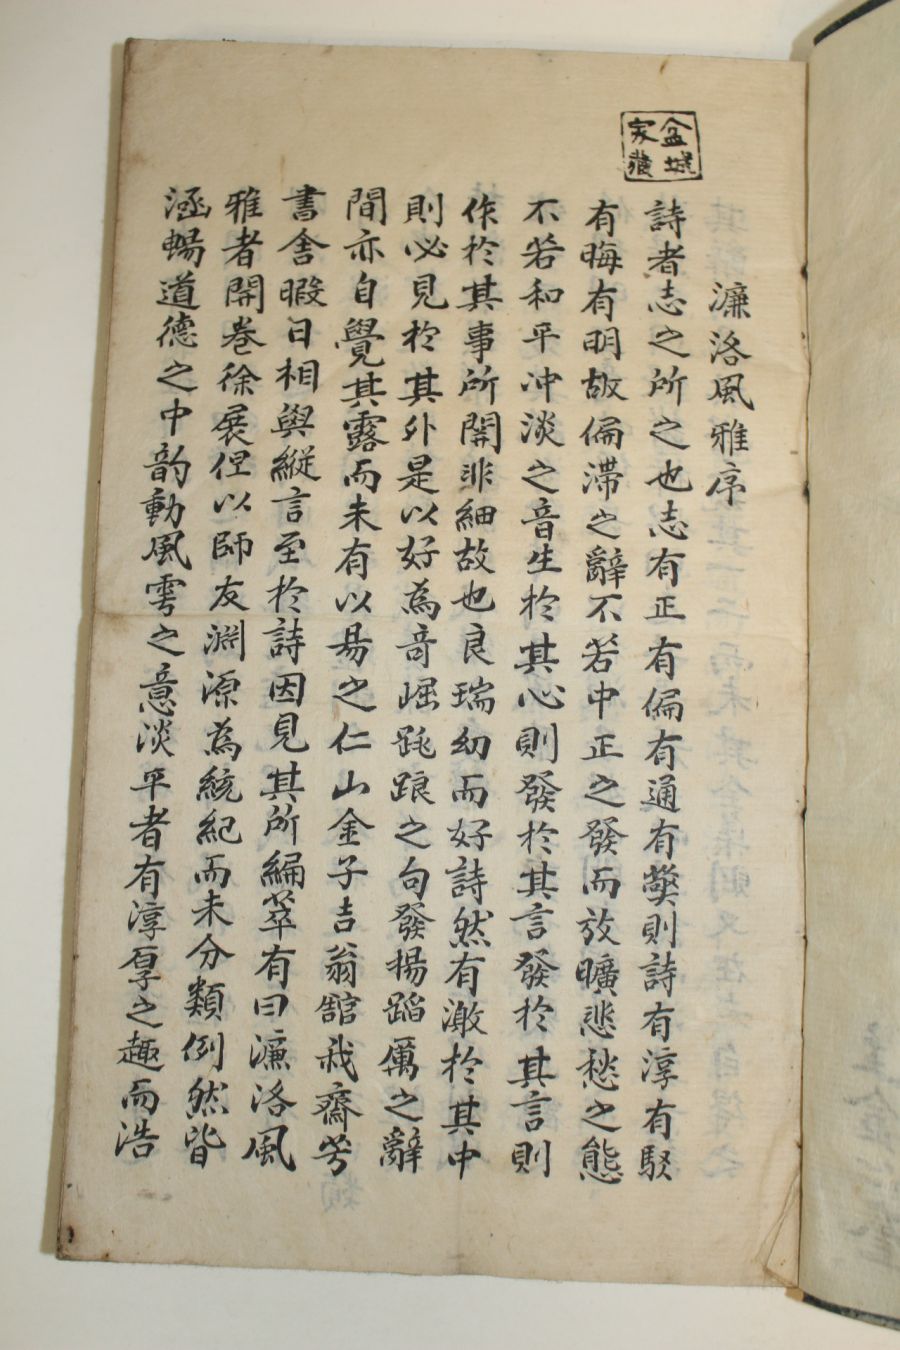 盆城
家藏
濂洛風雅序
詩者志之所之也志有正有偏有通有獘則詩有淳有駁
有晦有明故偏滯之辭不若中正之發而放曠悲愁之態
不若和平冲淡之音生於其心則發於其言發於其言則
作於其事所關非細故也良瑞幼而好詩然有激於其中
則必見於其外是以好為奇崛跌踉之句發揚蹈厲之辭
間亦自覺其露而未有以易之仁山金子吉翁舘我齋芳
書舍暇日相與縱言至於詩因見其所編萃有曰濂洛風
雅者開卷徐展但以師友淵源為統紀而未分類例然皆
涵暢道德之中韵動風雩之意淡平者有淳厚之趣而浩